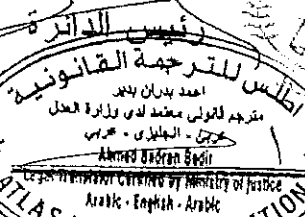 رئيس الدائرة
اطلس للترجمة القانونية
احمد بدران بدير
مترجم قانوني معتمد لدى وزارة العدل
عربي - انجليزي - عربي
Ahmed Badran Bedir
Legal Translator Certified by Ministry of Justice
Arabic - English - Arabic
ATLAS
TION